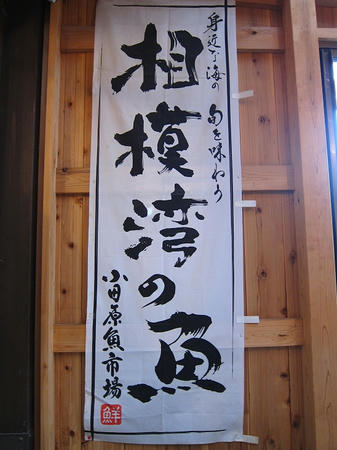 身近な海の旬を味わう
相模湾の魚
小田原魚市場
鮮